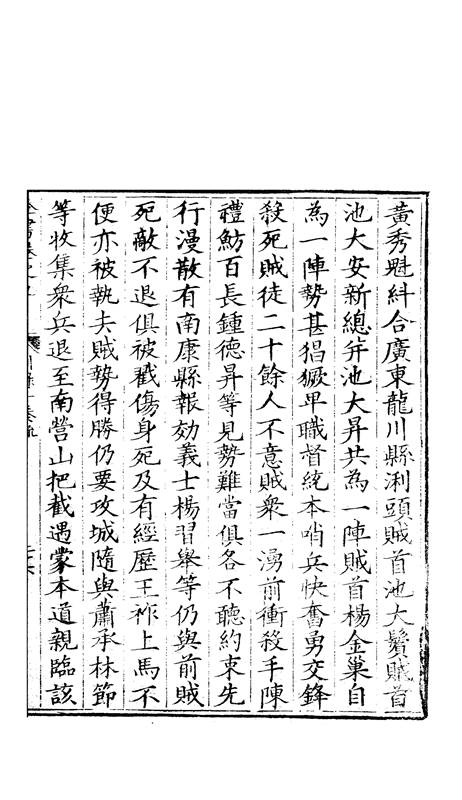 黃秀魁糾合廣東龍川縣浰頭賊首池大鬢賊首
池大安新總并池大昇共為一陣賊首楊金巢自
為一陣勢甚猖獗卑職督統本哨兵快奮勇交鋒
殺死賊徒二十餘人不意賊衆一湧前衝殺手陳
禮魴百長鍾德昇等見勢難當俱各不聽約束先
行漫散有南康縣報効義士楊習舉等仍與前賊
死敵不退俱被戳傷身死及有經歷王祚上馬不
便亦被執夫賊勢得勝仍要攻城隨與蕭承林節
等收集衆兵退至南營山把截遇蒙本道親臨該